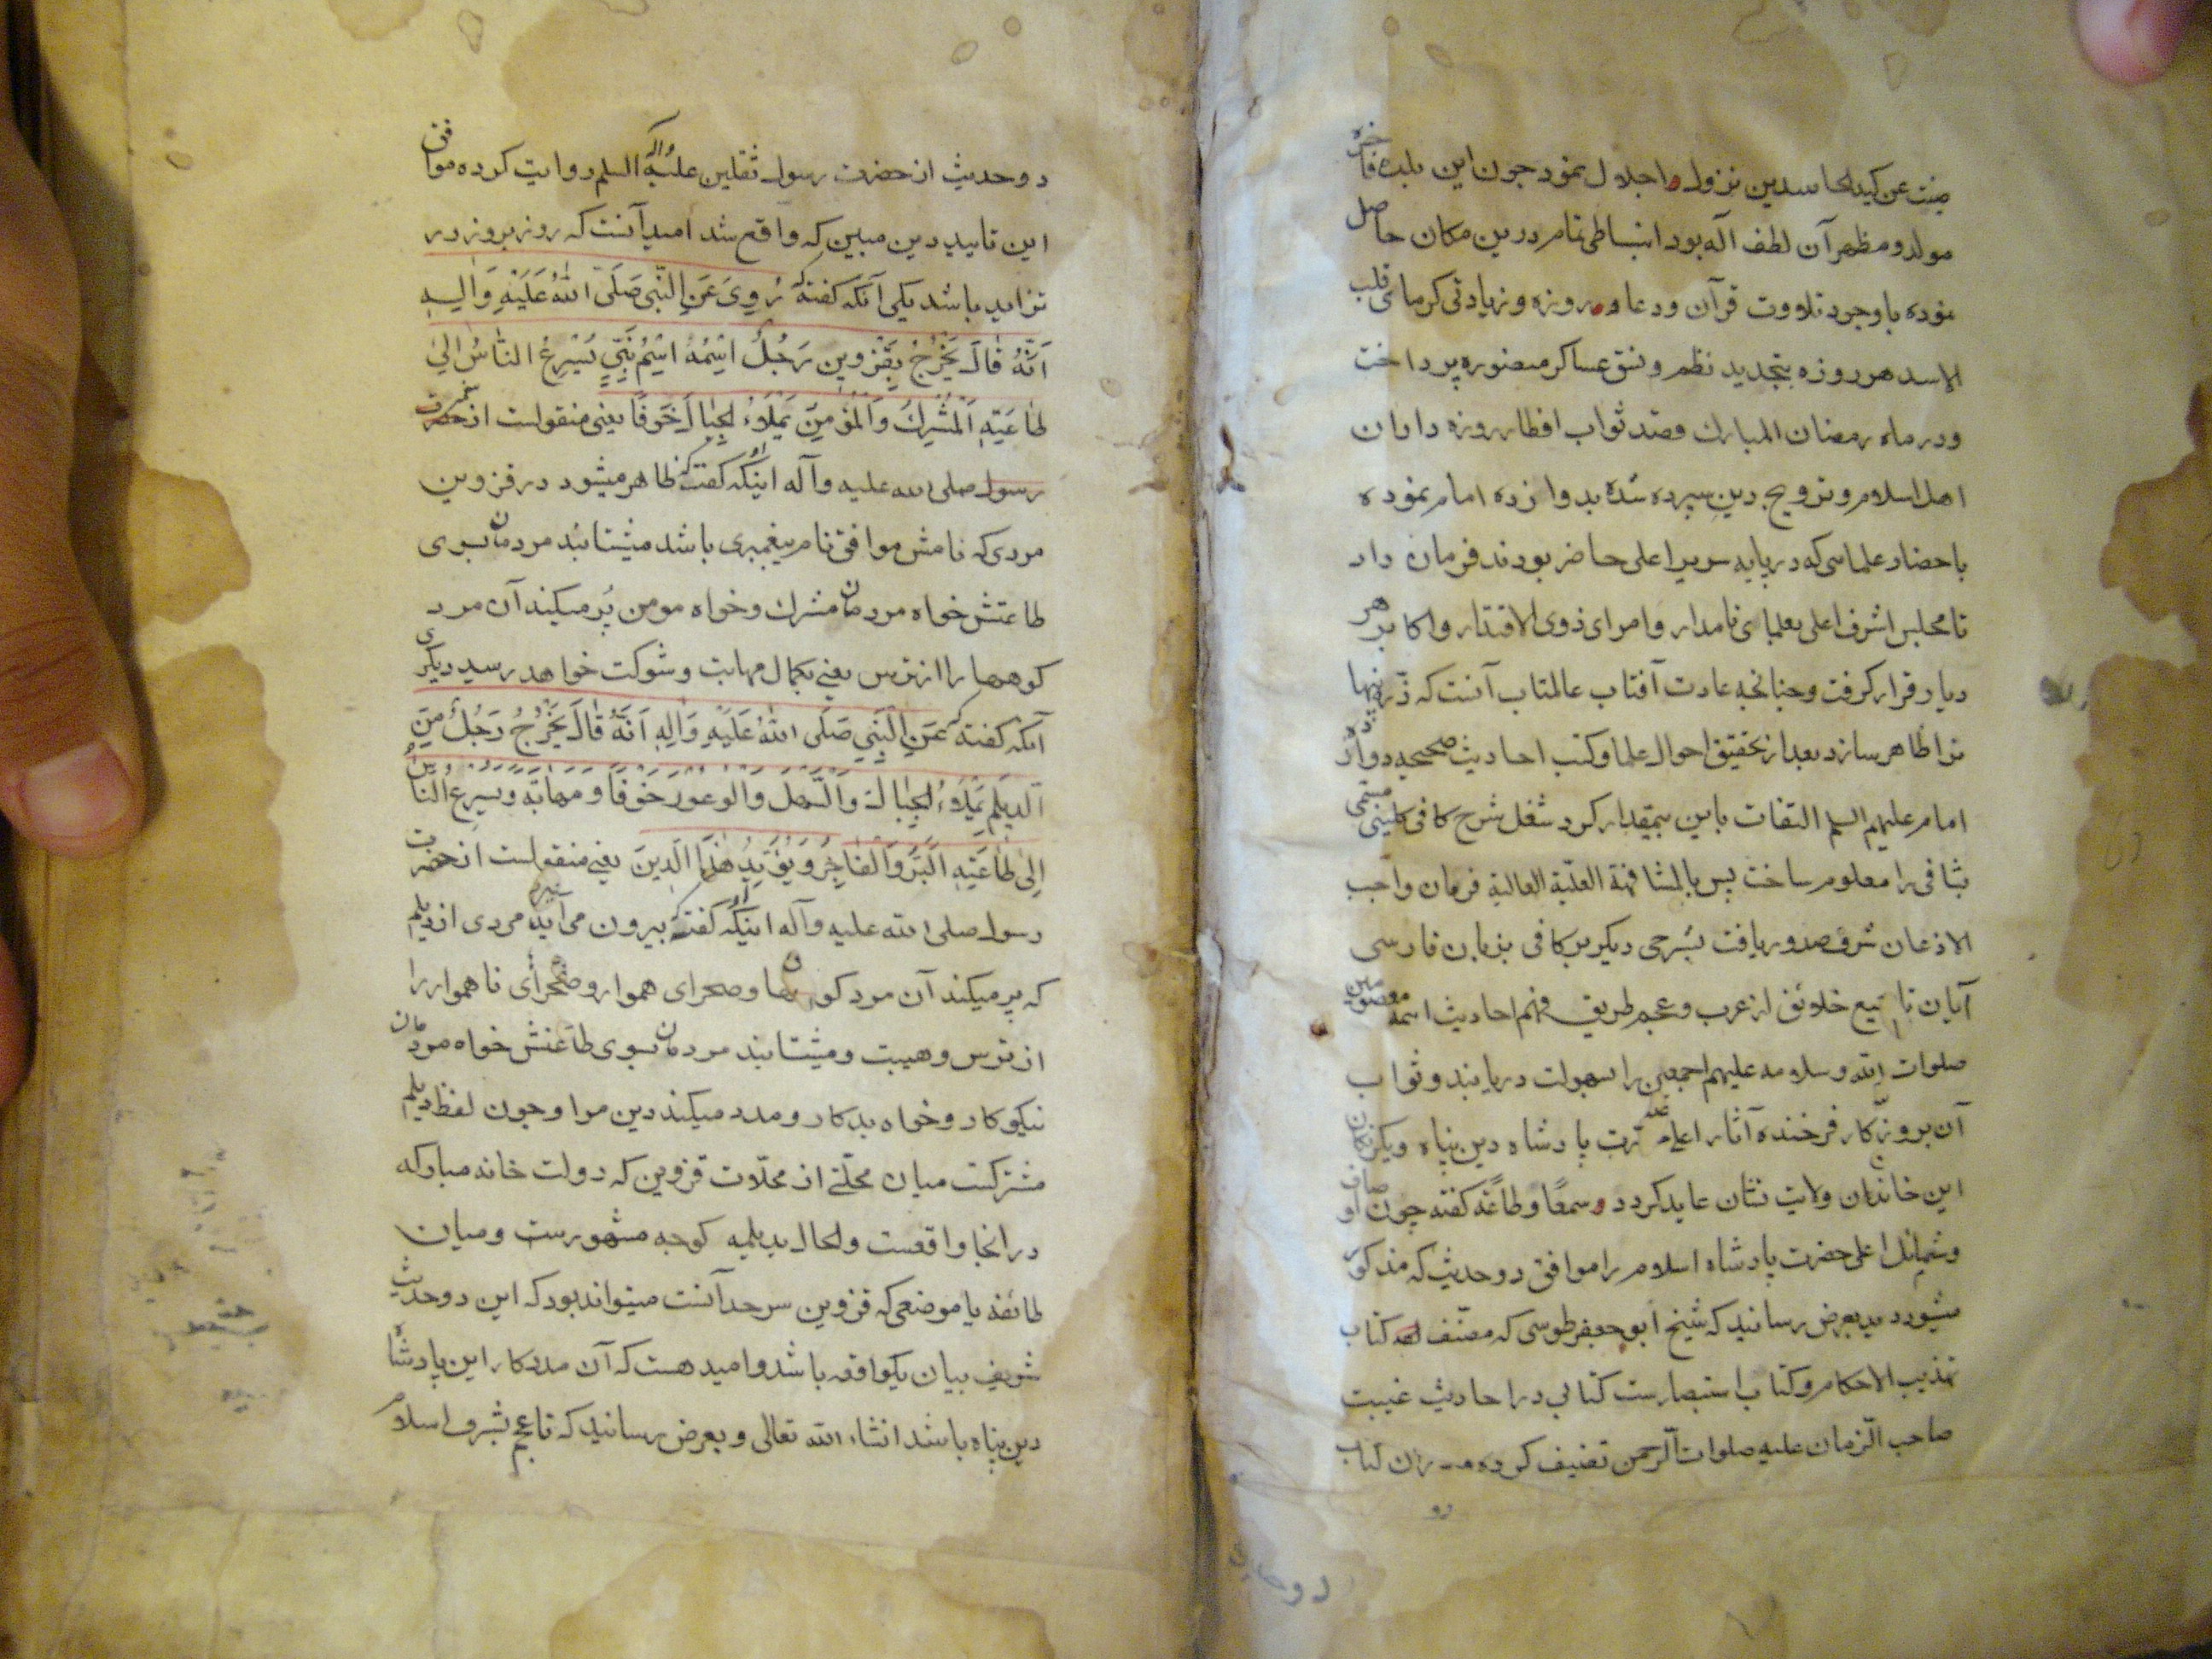 صینت عن کید الحاسدین نزول و اجلال نمود چون این بلده فاخره
مولد و مظهر آن لطف آله بود انبساطی تمام درین مکان حاصل
نموده با وجود تلاوت قرآن و دعا و روزه و زیادتی کرمای قلب
الاسد هر روزه بتجدید نظم و نسق عساکر منصوره پرداخت
و در ماه رمضان المبارک قصد ثواب افطار روزه داران
اهل اسلام و ترویج دین سپرده شده بدوازده امام نموده
باحضار علمایی که در پایه سریر اعلی حاضر بودند فرمان داد
تا مجلس اشرف اعلی بعلمای نامدار و امرای ذوی الاقتدار و اکابر هر
دیار قرار کرفت و چنانچه عادت آفتاب عالمتاب آنست که ذره پنهانرا
ظاهر سازد بعد از تحقیق احوال علما و کتب احادیث صحیحه دوازده
امام علیهم السلم التفات باین بیمقدار کرد شغل شرح کافی کلینی مسمی
بشافی را معلوم ساخت پس بالمشافهة العلیة العالیة فرمان واجب
الاذعان شرف صدور یافت بشرحی دیکر بر کافی بزبان فارسی
آبان تا جمیع خلائق از عرب و عجم طریق فهم احادیث ائمه معصومین
صلوات الله و سلامه علیهم اجمعین را بسهولت دریابند و ثواب
آن بروزکار فرخنده آثار اعلی حضرت پادشاه دین پناه و یکرنکان
این خاندان ولایت نشان عاید کردد و سمعًا و طاعةً کفته چون اوصاف
و شمایل اعلی حضرت پادشاه اسلام را موافق دو حدیث که مذکور
میشود دید بعرض رسانید که شیخ ابو جعفر طوسی که مصنف کتاب
تهذیب الاحکام و کتاب استبصارست کتابی در احادیث غیبت
صاحب الزمان علیه صلوات الرحمن تصنیف کرده و در آن کتاب
دو حدیث
دو حدیث از حضرت رسول ثقلین علیه و آله السلم روایت کرده موافق
این تایید دین مبین که واقع شد امید آنست که روز بروز در
تزاید باشد یکی آنکه کفته که رُوِیَ عَنِ النَّبِیِ صَلَّی اللهُ عَلَیْهِ وَآلِهِ
اَنَّهُ قٰالَ یَخْرُجُ بِقَزْوینِ رَجُلٌ اسْمُهُ اسْمُ نَبِیٍّ یُسْرِعُ النّاسُ اِلیٰ
طٰاعَتِهِ اَلْمُشْرِکُ وَالْمُؤْمِنُ یَمْلَاءُ الْجِبٰالَ خَوْفًا یعنی منقولست از حضرت
رسول صلی الله علیه و آله اینکه او کفت که ظاهر میشود در قزوین
مردی که نامش موافق نام پیغمبری باشد میشتابند مردمان بسوی
طاعتش خواه مردمان مشرک و خواه مومن پُر میکند آن مرد
کوهها را از ترس یعنی بکمال مهابت و شوکت خواهد رسید دیکری
آنکه کفته که عَنِ النَّبِیِ صَلَّی اللهُ عَلَیْهِ وَآلِهِ اَنَّهُ قٰالَ یَخْرُجُ رَجُلٌ مِنَ
الدَّیْلَمِ یَمْلَاءُ الْجِبٰالَ وَالسَّهْلَ وَالْوُعُورَ خَوْفًا وَ مَهٰابَةً وَیُسْرِعُ النّاسُ
اِلیٰ طٰاعَتِهِ الْبَرُّ وَالْفٰاجِرُ وَیُؤَیِّدُ هٰذَا الدّینَ یعنی منقولست از حضرت
رسول صلی الله علیه و آله اینکه او کفته که بیرون می آید مردی از دیلم
که پر میکند آن مرد کوهها و صحرای هموار و صحرای ناهموار را
از ترس و هیبت و میشتابند مردمان بسوی طاعتش خواه مردمان
نیکوکار و خواه بدکار و مدد میکند دین مرا و چون لفظ دیلم
مشترکست میان محلتی از محلات قزوین که دولت خانه مبارکه
در انجا واقعست و الحال بدیلمه کوچه مشهورست و میان
طائفه یا موضعی که قزوین سرحد آنست میتواند بود که این دو حدیث
شریف بیان یکواقعه باشد و امید هست که آن مددکار این پادشاه
دین پناه باشد انشاء الله تعالی و بعرض رسانید که تا عجم بشرف اسلام